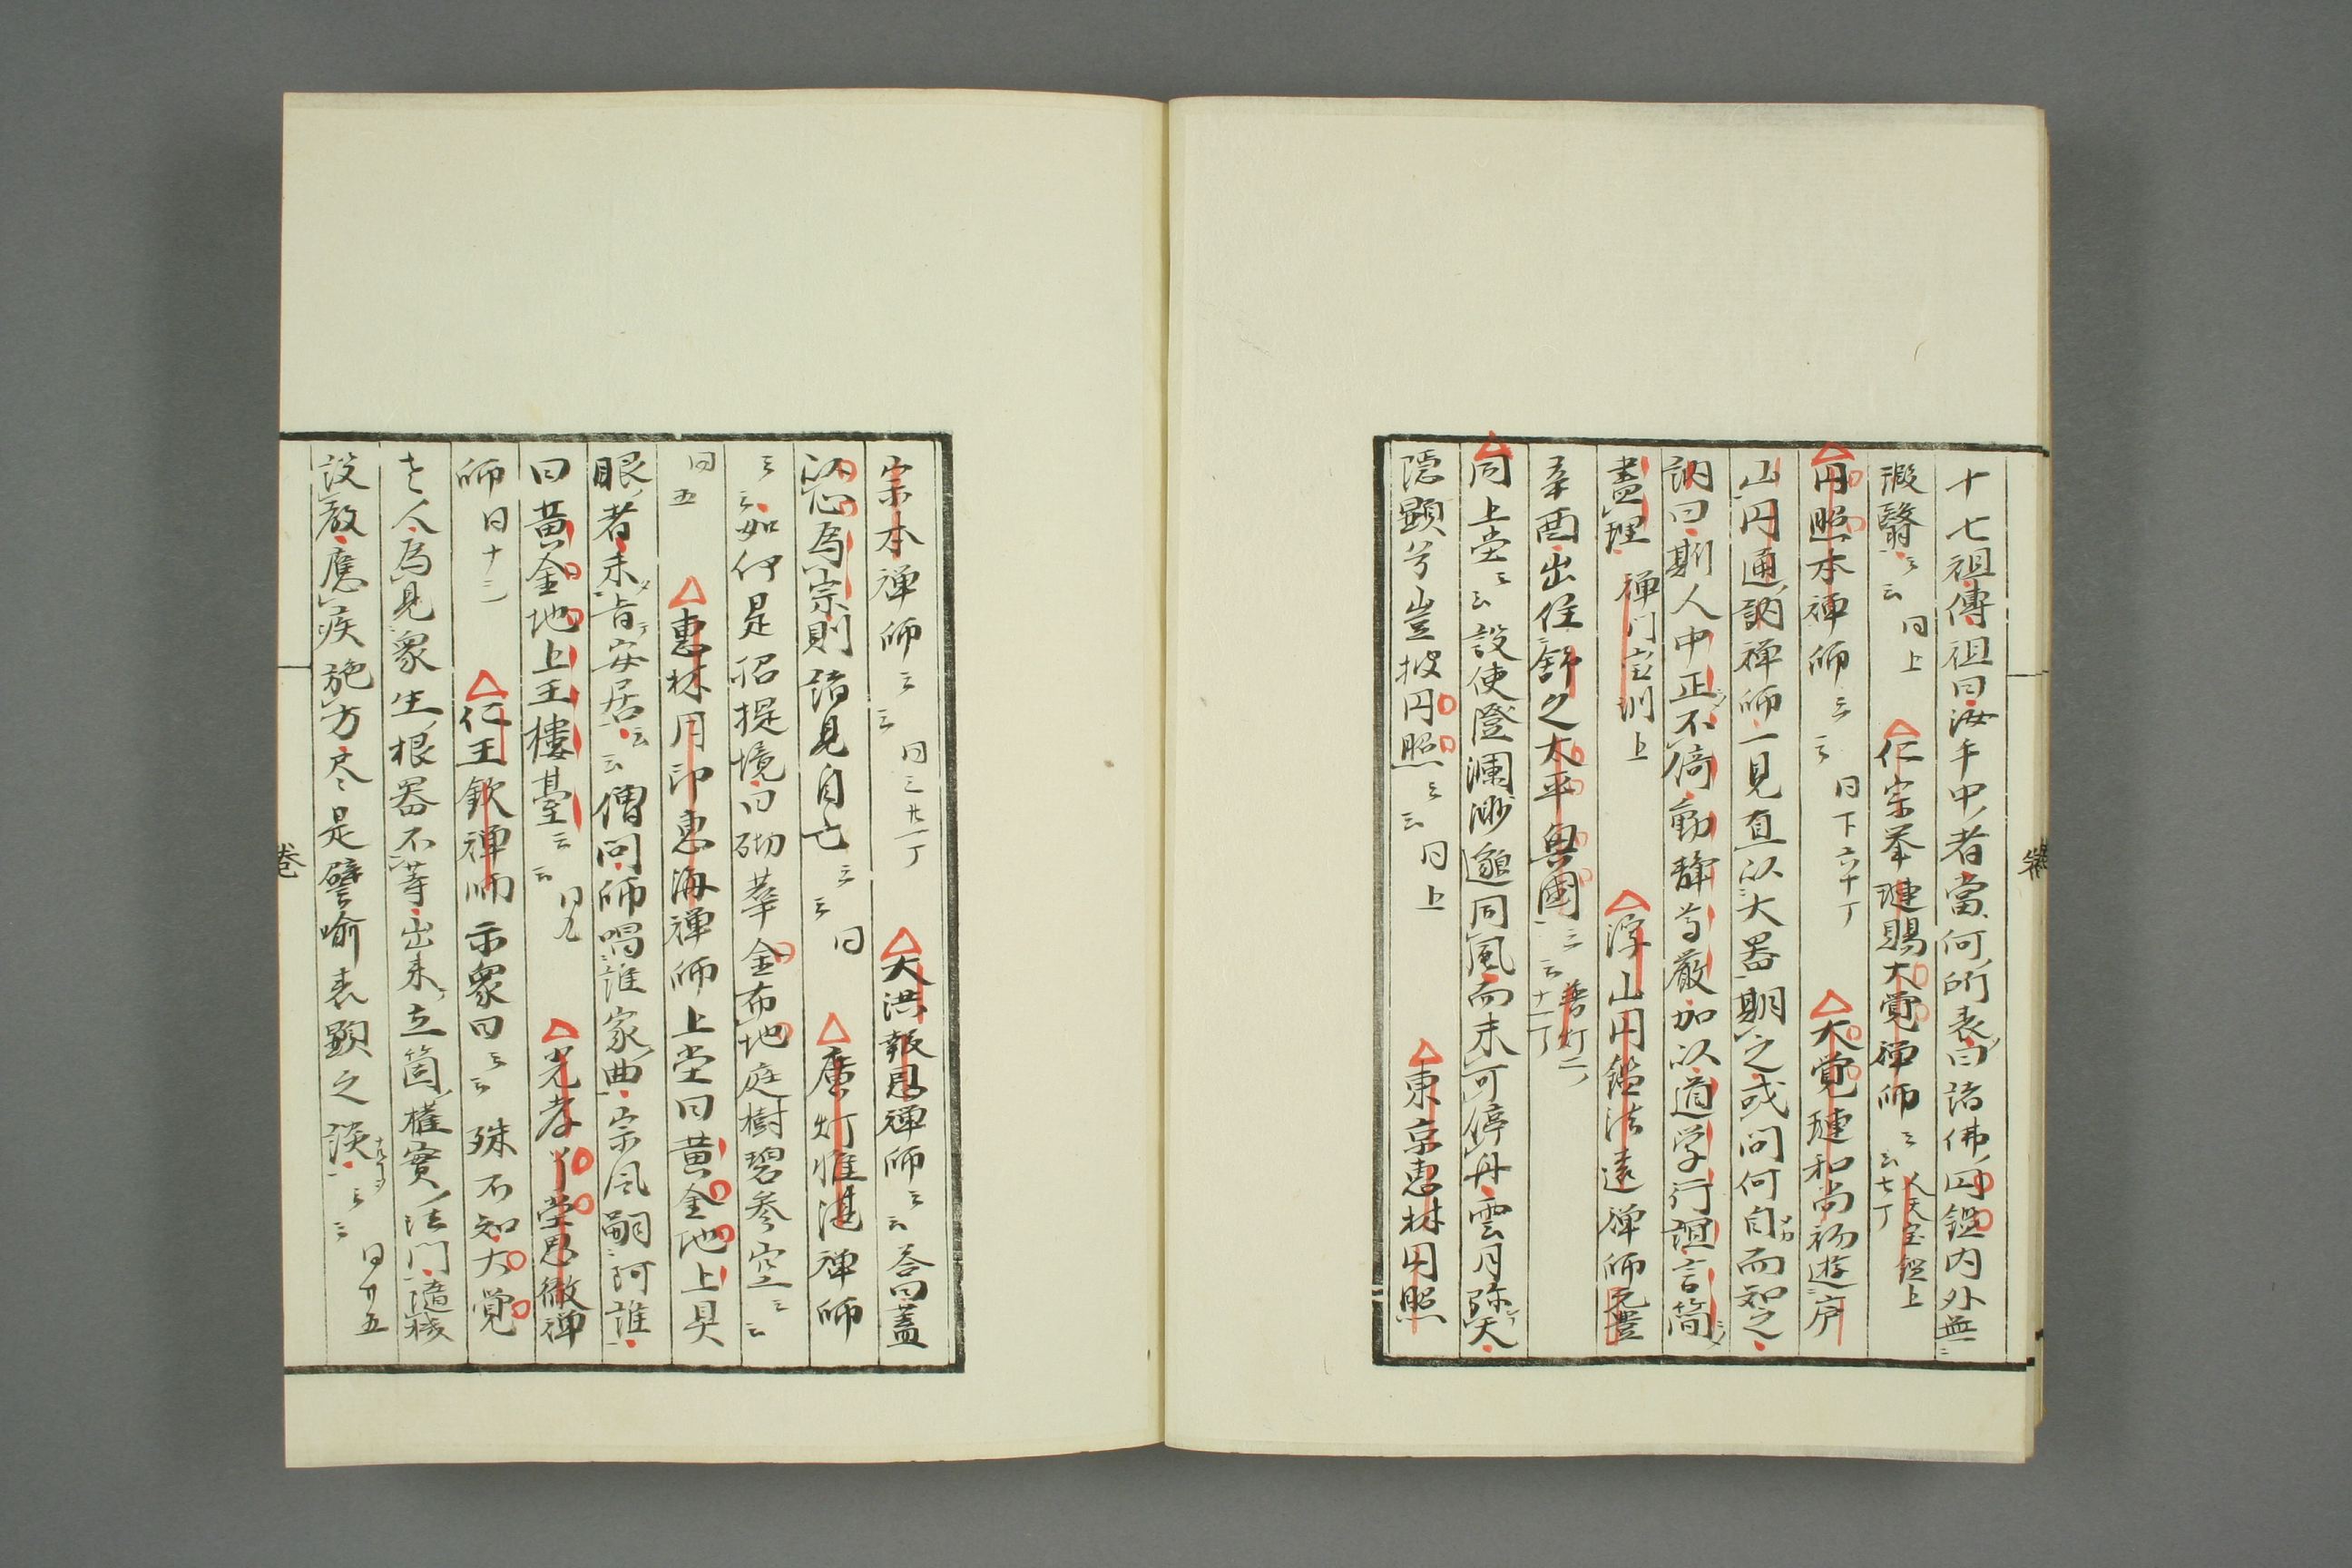 十七祖傳祖曰汝手中者當何所表曰諸佛円鑑内外無
瑕翳云云 同上 △仁宗奉璉賜大覚禅師云云 人天宝鑑上 七丁
△円照本禅師云云 同下六十丁 △大覚璉和尚初遊庐
山円通訥禅師一見直以大器期之或問何自而知之
訥曰斯人中正不倚動静尊厳加以道学行誼言簡
盡理 禅门宝训上 △浮山円鑑法遠禅師元豊
辛酉出住舒之太平興國云云 普灯二 十一丁
△同上堂云云設使澄瀾渺邈同風而未可停丹雲月弥天
隠顕兮豈披円照云云同上 △東京恵林円照
宗本禅師云云 同三廿一丁 △大洪報恩禅師云云荅曰蓋
恐為宗則諸見自亡云云同 △廣灯惟湛禅師
云云如何是招提境曰砌莘金布地庭樹碧参空云云
同五 △恵林月印恵海禅師上堂曰黄金地上具
眼者未肯安居云云僧問師唱誰家曲宗风嗣阿誰
曰黄金地上玉樓臺云云同九 △光孝丫堂思徹禅
師同十三 △仁王欽禅師示衆曰云云殊不知大覚
老人為見衆生根器不等出来立箇権實法门随機
設教應疾施方尽是譬喻表顕之談云云同廿五
卷